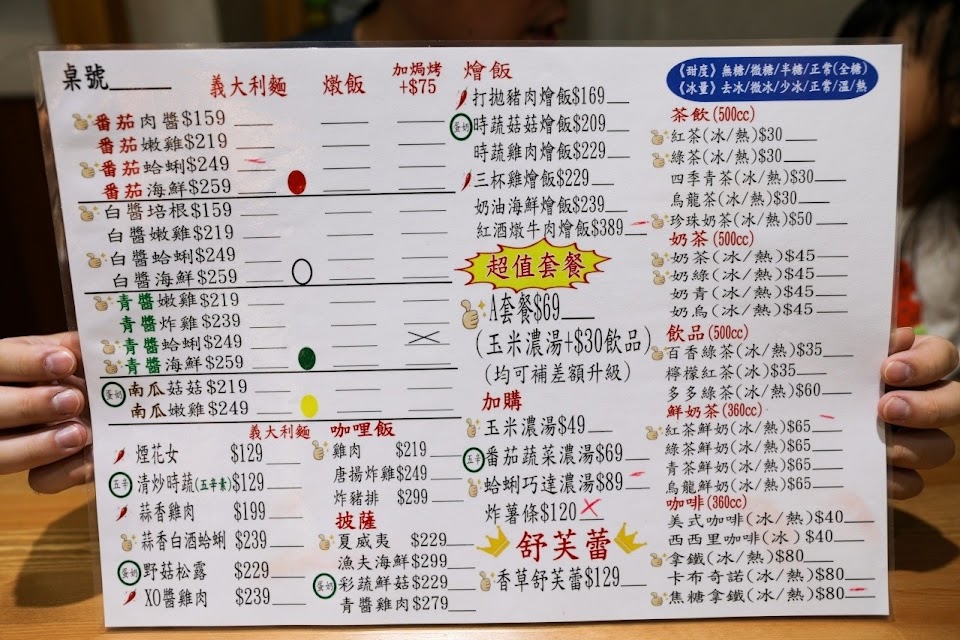 桌號
義大利麵 燉飯 加焗烤+$75
番茄肉醬$159
番茄嫩雞$219
番茄蛤蜊$249
番茄海鮮$259
白醬培根$159
白醬嫩雞$219
白醬蛤蜊$249
白醬海鮮$259
青醬嫩雞$219
青醬炸雞$239
青醬蛤蜊$249
青醬海鮮$259
蛋奶 南瓜菇菇$219
南瓜嫩雞$249
義大利麵
煙花女 $129
五辛 清炒時蔬(五辛素)$129
蒜香雞肉 $199
蒜香白酒蛤蜊 $239
蛋奶 野菇松露 $229
XO醬雞肉 $239
咖哩飯
雞肉 $219
唐揚炸雞$249
炸豬排 $299
披薩
夏威夷 $229
漁夫海鮮$299
蛋奶 彩蔬鮮菇$229
青醬雞肉$279
燴飯
打拋豬肉燴飯$169
蛋奶 時蔬菇菇燴飯$209
時蔬雞肉燴飯$229
三杯雞燴飯$229
奶油海鮮燴飯$239
紅酒燉牛肉燴飯$389
超值套餐
A套餐$69
(玉米濃湯+$30飲品)
(均可補差額升級)
加購
玉米濃湯$49
五辛 番茄蔬菜濃湯$69
蛤蜊巧達濃湯$89
炸薯條$120
舒芙蕾
香草舒芙蕾$129
《甜度》無糖/微糖/半糖/正常(全糖)
《冰量》去冰/微冰/少冰/正常/溫/熱
茶飲(500cc)
紅茶(冰/熱)$30
綠茶(冰/熱)$30
四季青茶(冰/熱)$30
烏龍茶(冰/熱)$30
珍珠奶茶(冰/熱)$50
奶茶(500cc)
奶茶(冰/熱)$45
奶綠(冰/熱)$45
奶青(冰/熱)$45
奶烏(冰/熱)$45
飲品(500cc)
百香綠茶(冰/熱)$35
檸檬紅茶(冰)$35
多多綠茶(冰/熱)$60
鮮奶茶(360cc)
紅茶鮮奶(冰/熱)$65
綠茶鮮奶(冰/熱)$65
青茶鮮奶(冰/熱)$65
烏龍鮮奶(冰/熱)$65
咖啡(360cc)
美式咖啡(冰/熱)$40
西西里咖啡(冰)$40
拿鐵(冰/熱)$80
卡布奇諾(冰/熱)$80
焦糖拿鐵(冰/熱)$80